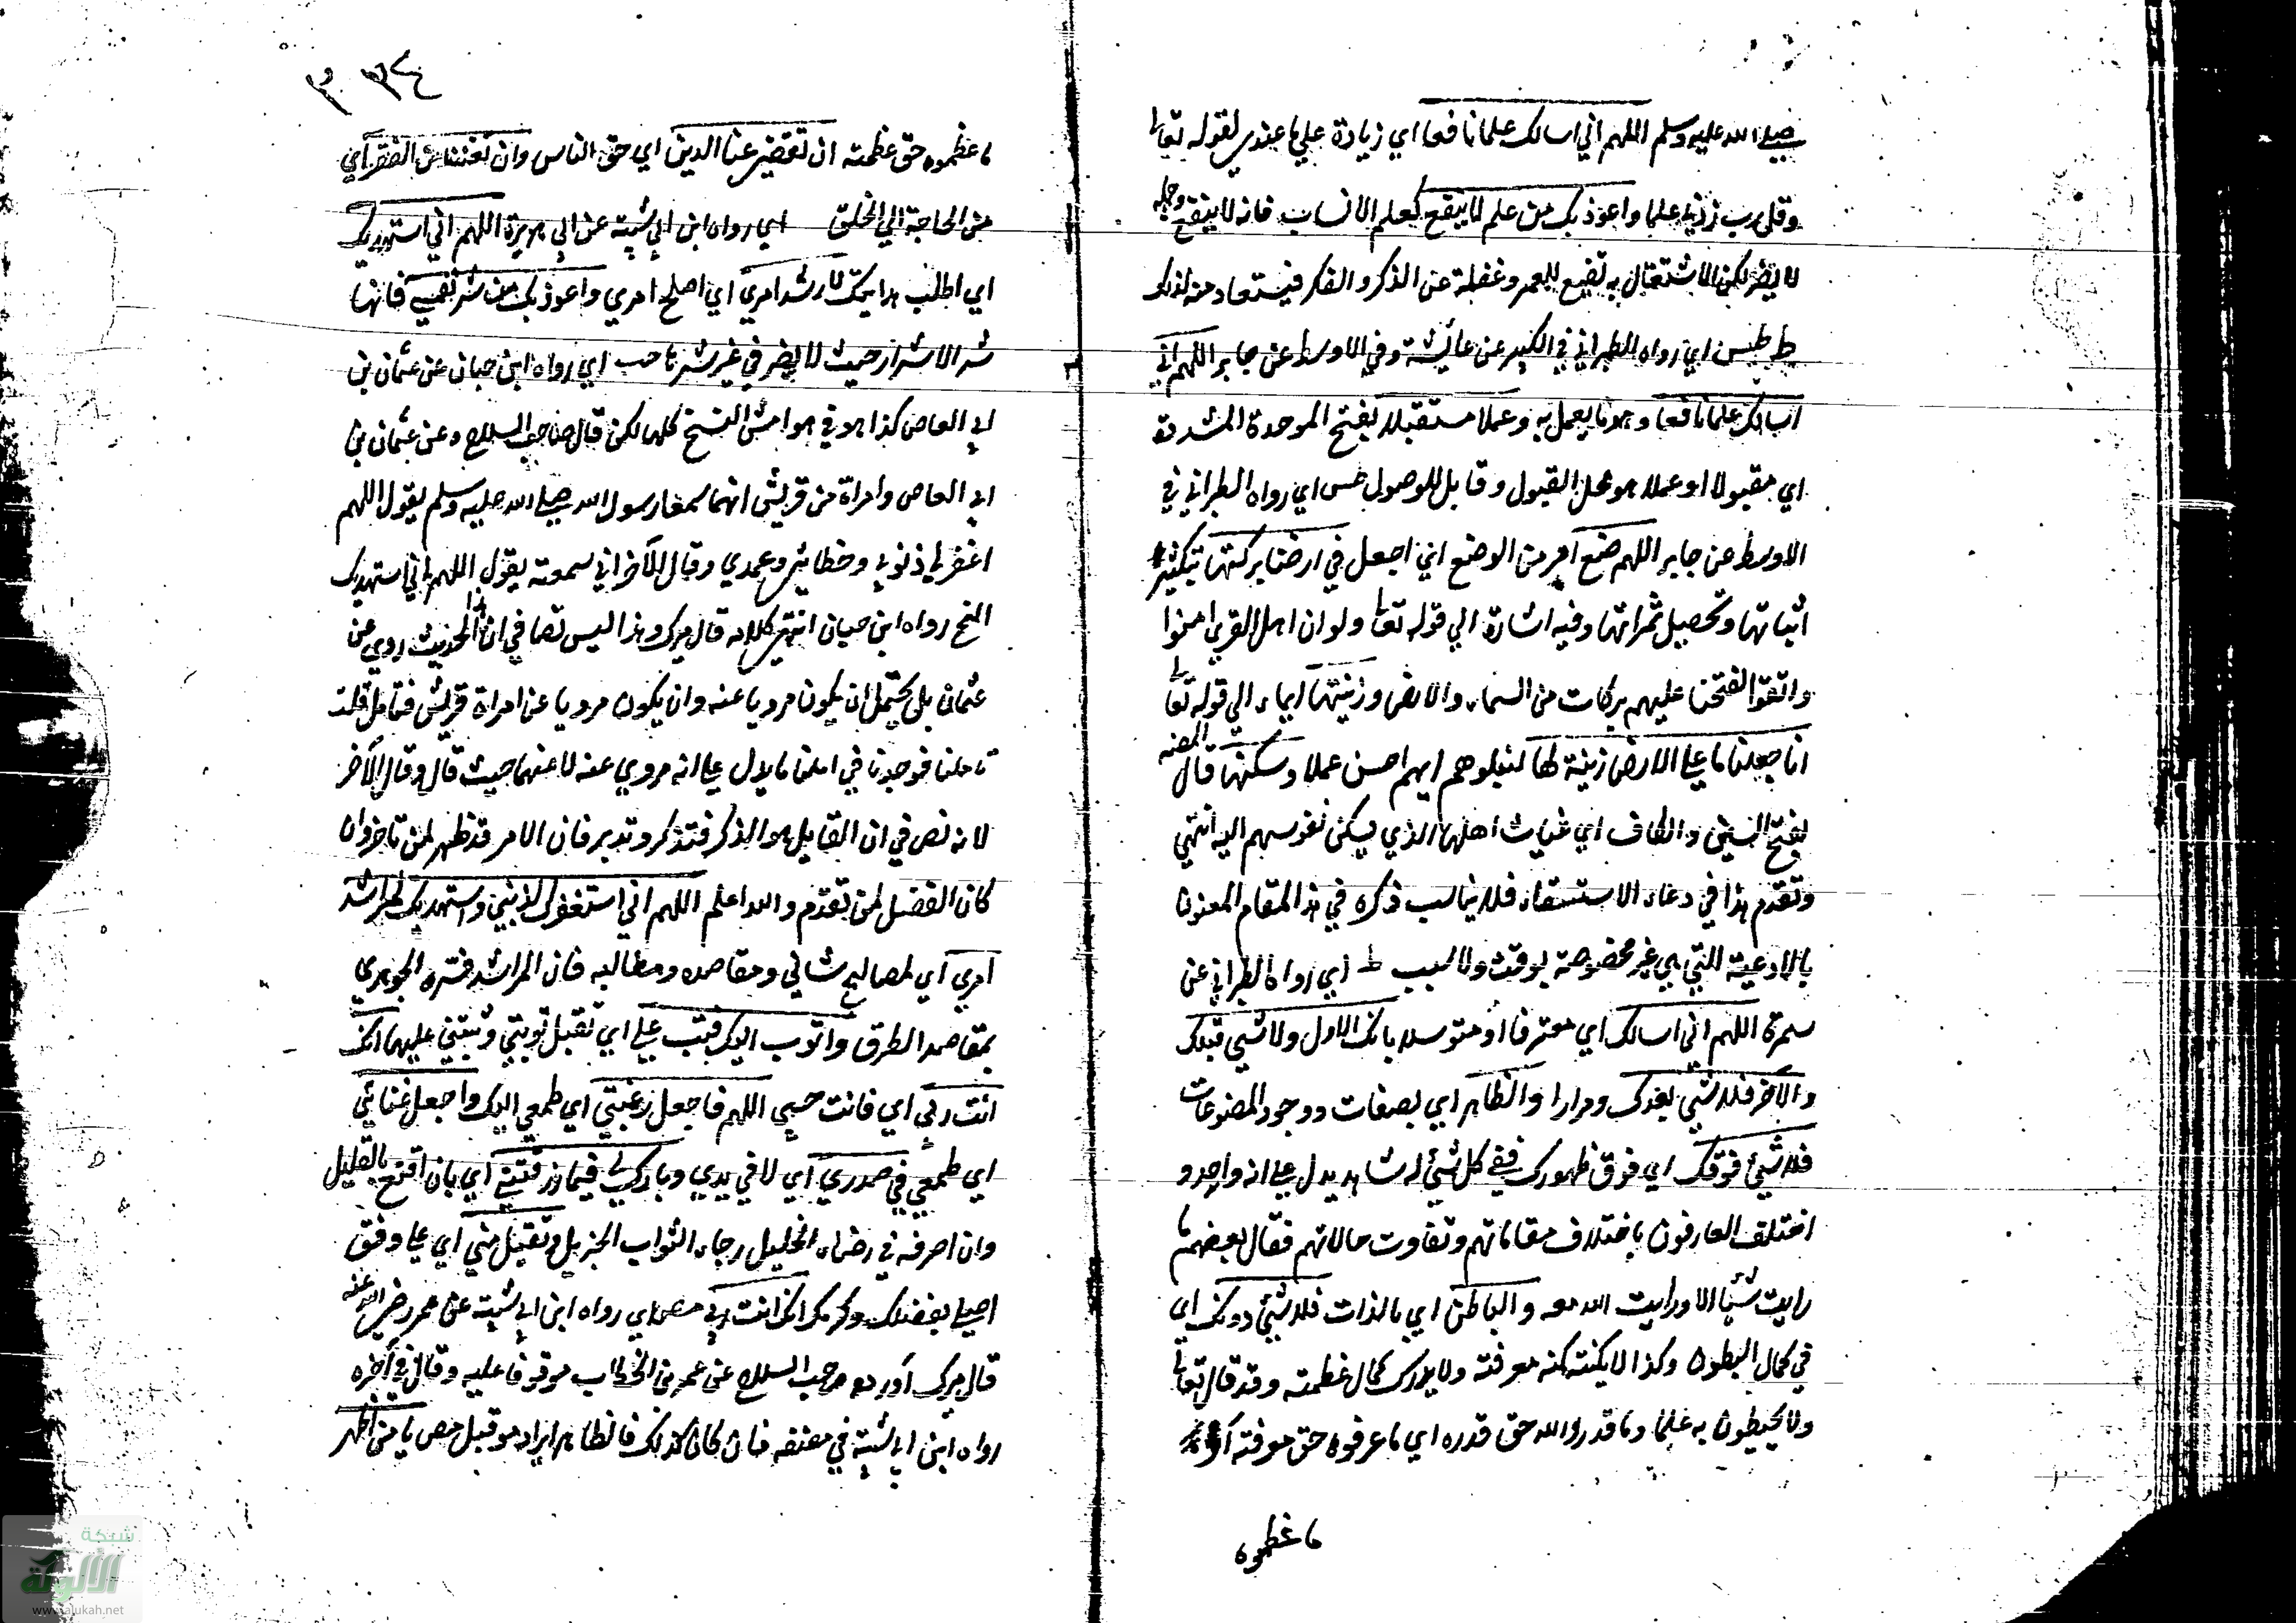 صلى الله عليه وسلم اللهم اني اسالك علما نافعا اي زيادة على ما عندي لقوله تعالى
وقل رب زدني علما واعوذ بك من علم لا ينفع كعلم الانساب فانه لا ينفع وجهله
لا يضر لكن الاشتغال به تضيع للعمر وغفلة عن الذكر والفكر فيستعاد منه لذلك
ط طس اي رواه الطبراني في الكبير عن عائشة وفي الاوسط عن جابر اللهم اني
اسالك علما نافعا وهو ما يعمل به وعملا متقبلا بفتح الموحدة المشددة
اي مقبولا او عملا هو محل القبول وقابل للوصول طس اي رواه الطبراني في
الاوسط عن جابر اللهم ضع امر من الوضع اي اجعل في ارضنا بركتها بتكثير
انباتها وتحصيل ثمراتها وفيه اشارة الي قوله تعالى ولو ان اهل القري امنوا
واتقوا لفتحنا عليهم بركات من السماء والارض وزينتها ايماء الي قوله تعالى
انا جعلنا ما على الارض زينة لها لنبلوهم ايهم احسن عملا وسكنها قال المصنف
بفتح السين والكاف اي غياث اهلها الذي يسكن نفوسهم اليه انتهي
وتقدم هذا في دعاء الاستسقاء فلا يناسب ذكره في هذا المقام المعنون
بالادعية التي هي غير مخصوصة بوقت ولا سبب ط اي رواه الطبراني عن
سمرة اللهم اني اسالك اي معترفا او متوسلا بانك الاول ولا شيء قبلك
والآخر فلا شيء بعدك ومرارا والظاهر اي بصفات ووجود المصنوعات
فلا شيء فوقك اي فوق ظهورك ففي كل شيء له شاهد يدل على انه واحد و
اختلف العارفون باختلاف مقاماتهم وتفاوت حالاتهم فقال بعضهم ما
رايت شيئا الا ورايت الله معه والباطن اي بالذات فلا شيء دونك اي
في كمال البطون وكذا لا يكتنه كنه معرفته ولا يدرك كمال عظمته وقد قال تعالى
ولا يحيطون به علما وما قدروا الله حق قدره اي ما عرفوه حق معرفته او
ما عظموه
٣٤ ٣
ما عظموه حق عظمته ان تقضي عنا الدين اي حق الناس وان تغنينا من الفقر اي
من الحاجة الي الخلق اي رواه ابن ابي شيبة عن ابي هريرة اللهم اني استهديك
اي اطلب هدايتك لارشد امري اي اصلح امري واعوذ بك من شر نفسي فانها
شر الاشرار حيث لا يضر في غير شرها حب اي رواه ابن حبان عن عثمان بن
ابي العاص كذا هو في هوامش النسخ كلها لكن قال صاحب السلاح وعن عثمان بن
ابي العاص وامراة من قريش انهما سمعا رسول الله صلى الله عليه وسلم يقول اللهم
اغفر لي ذنوبي وخطائي وعمدي وقال الآخر اني سمعته يقول اللهم اني استهديك
الخ رواه ابن حبان انتهي كلامه قال ميرك وهذا ليس نصا في ان هذا الحديث روي عن
عثمان بل يحتمل ان يكون مرويا عنه وان يكون مرويا عن امراة قريش فتامل قلت
تاملنا فوجدنا في املنا ما يدل على انه مروي عنه لا عنها حيث قال وقال الآخر
لانه نص في ان القايل هو الذكر فتذكر وتدبر فان الامر قد ظهر لمن تاخر وان
كان الفضل لمن تقدم والله اعلم اللهم اني استغفرك لذنبي واستهديك لمراشد
امري اي لمصالح شاني ومقاصده ومطالبه فان المراشد فسره الجوهري
بمقاصد الطرق واتوب اليك فتب علي اي تقبل توبتي وثبتني عليها انك
انت ربي اي فانت حسبي اللهم فاجعل رغبتي اي طمعي اليك واجعل غنائي
اي طمعي في صدري اي لا في يدي وبارك لي فيما رزقتني اي بان اقنع بالقليل
وان اصرفه في رضاء الجليل رجاء الثواب الجزيل وتقبل مني اي على وفق
املي بفضلك وكرمك انك انت ربي مص اي رواه ابن ابي شيبة عن عمر رضي الله عنه
قال ميرك اورده صاحب السلاح عن عمر بن الخطاب موقوفا عليه وقال في آخره
رواه ابن ابي شيبة في مصنفه فان كان كذلك فالظاهر ايراد مو قبل مص يا من اظهر
شبكة
الألوكة
www.alukah.net